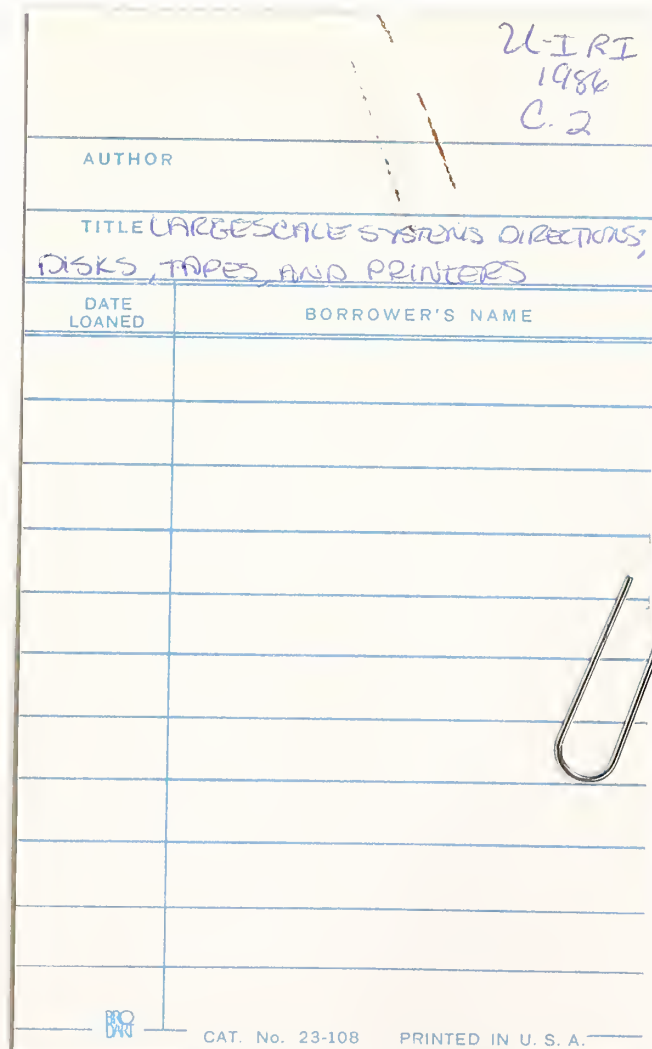 U-IRI
1986
C.2
AUTHOR
TITLE LARGESCALE SYSTEMS DIRECTIONS;
DISKS, TAPES, AND PRINTERS
DATE LOANED
BORROWER'S NAME
BRO DART
CAT. No. 23-108 PRINTED IN U. S. A.